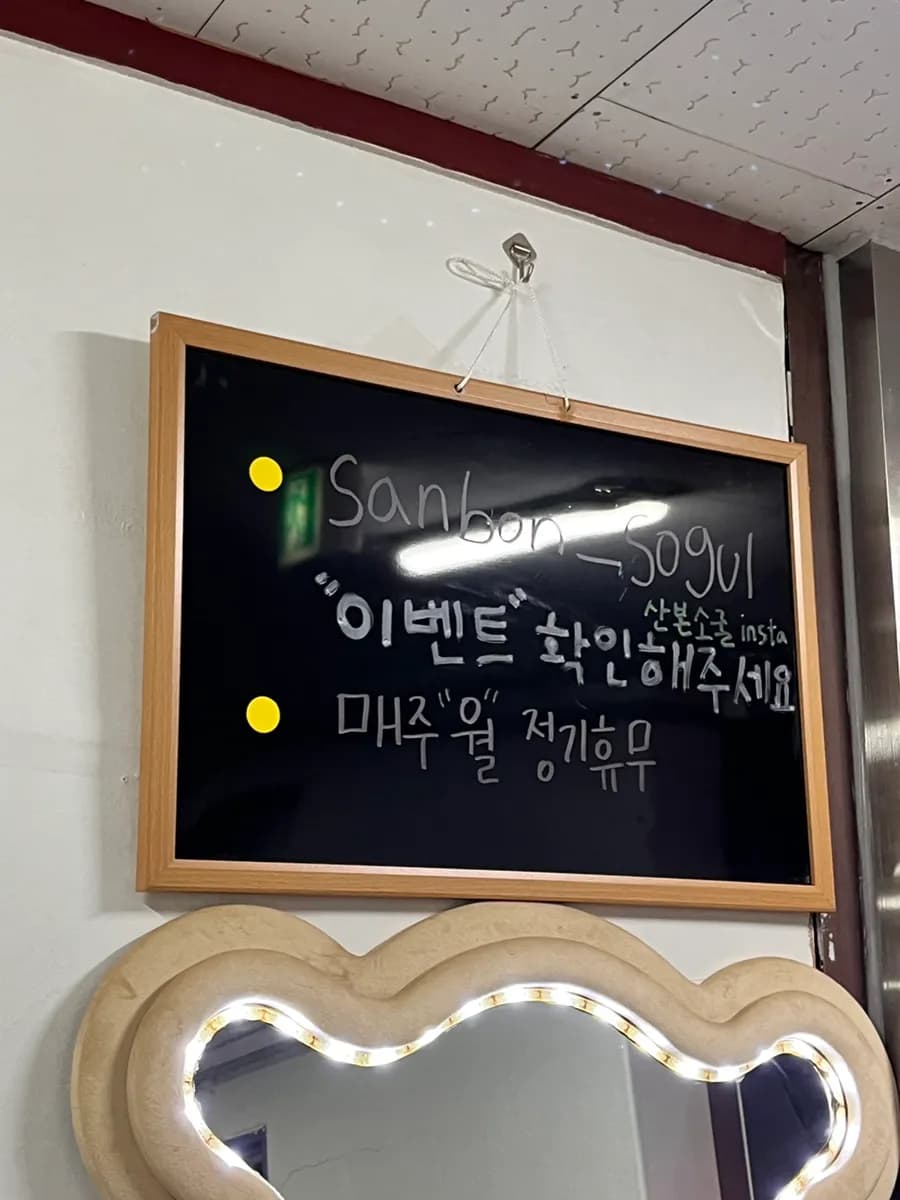 Sanbon_sogul
산본소굴 insta
"이벤트" 확인해주세요
매주"월" 정기휴무